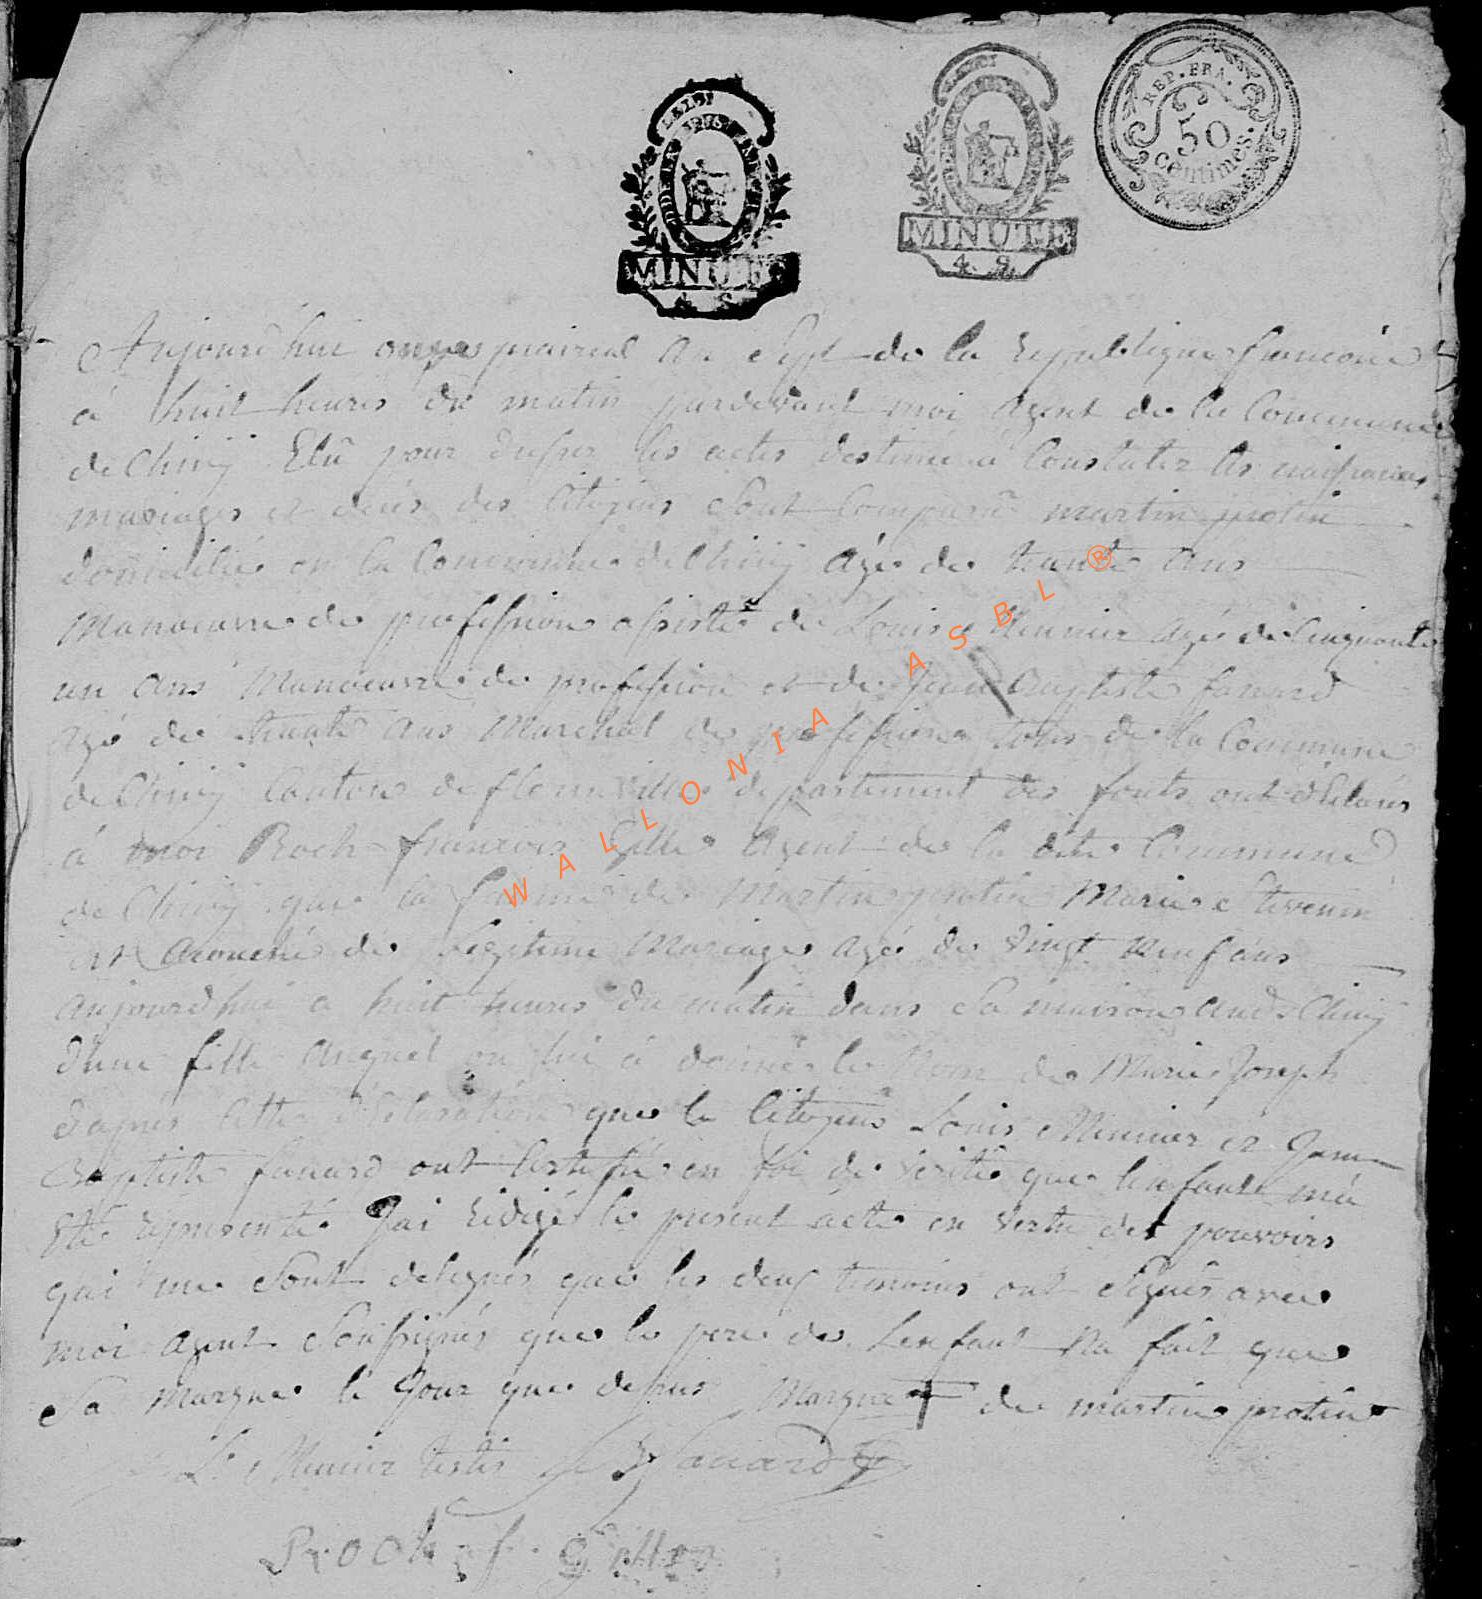 MINUTE
MINUTE
4. S.
REP. FRA.
50
centimes.
Aujourd'hui onze prairial an Sept de la republique francoise
à huit heures du matin pardevant moi agent de la Commune
de Chiny Elû pour dresser les actes destiné à Constater les naissances
mariages et decés des Citoyens Sont Comparû martin protin
domicilié en la Commune de Chiny Agé de trente ans
Manoeuvre de profession assisté de Louis Meunier agé de Cinquante
un ans Manoeuvre de profession et de Jean Baptiste fanard
agé de trente ans Marchal de profession tous de la Commune
de Chiny Canton de florenville departement des forêts ont déclarés
à moi Roch francois Gille Agent de la dite Commune
de Chiny que la femme de Martin protin Marie Etevenin
est acouché de Legitime Mariage agé de vingt neuf ans
aujourdhui a huit heures du matin dans Sa maison aud. Chiny
d'une fille auquel on lui à donné le Nom de Marie Joseph
d'apres cette déclaration que le Citoyens Louis Meunier et Jean
Baptiste fanard ont Certifié en foi de vérité que lenfant ma
Eté représenté Jai rédigé le present acte en vertu des pouvoirs
qui me Sont delegués que les deux temoins ont Signés avec
moi agent Soussignés que le pere de Lenfant Na fait que
Sa Marque le Jour que dessus Marque + de martin protin
L. Meunier testis J B fanard
Roch f. Gille
WALLONIA ASBL ®